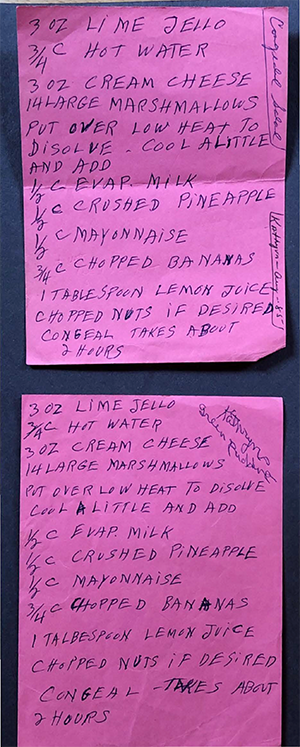 3 OZ LIME JELLO
3/4 C HOT WATER
3 OZ CREAM CHEESE
14 LARGE MARSHMALLOWS
PUT OVER LOW HEAT TO
DISOLVE - COOL A LITTLE
AND ADD
1/2 C EVAP. MILK
1/2 C CRUSHED PINEAPPLE
1/2 C MAYONNAISE
3/4 C CHOPPED BANANAS
1 TABLESPOON LEMON JUICE
CHOPPED NUTS IF DESIRED
CONGEAL TAKES ABOUT
2 HOURS
Congeal Salad
Kathryn - Aug - 85
3 OZ LIME JELLO
3/4 C HOT WATER
3 OZ CREAM CHEESE
14 LARGE MARSHMALLOWS
PUT OVER LOW HEAT TO DISOLVE
COOL A LITTLE AND ADD
1/2 C EVAP. MILK
1/2 C CRUSHED PINEAPPLE
1/2 C MAYONNAISE
3/4 C CHOPPED BANANAS
1 TALBESPOON LEMON JUICE
CHOPPED NUTS IF DESIRED
CONGEAL - TAKES ABOUT
2 HOURS
Kathryn's
Green